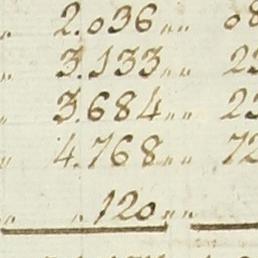 2.036 „ „ 08
„ 3.133 „ „ 23
„ 3.684 „ „ 23
„ 4.768 „ „ 72
„ „ 120 „ „